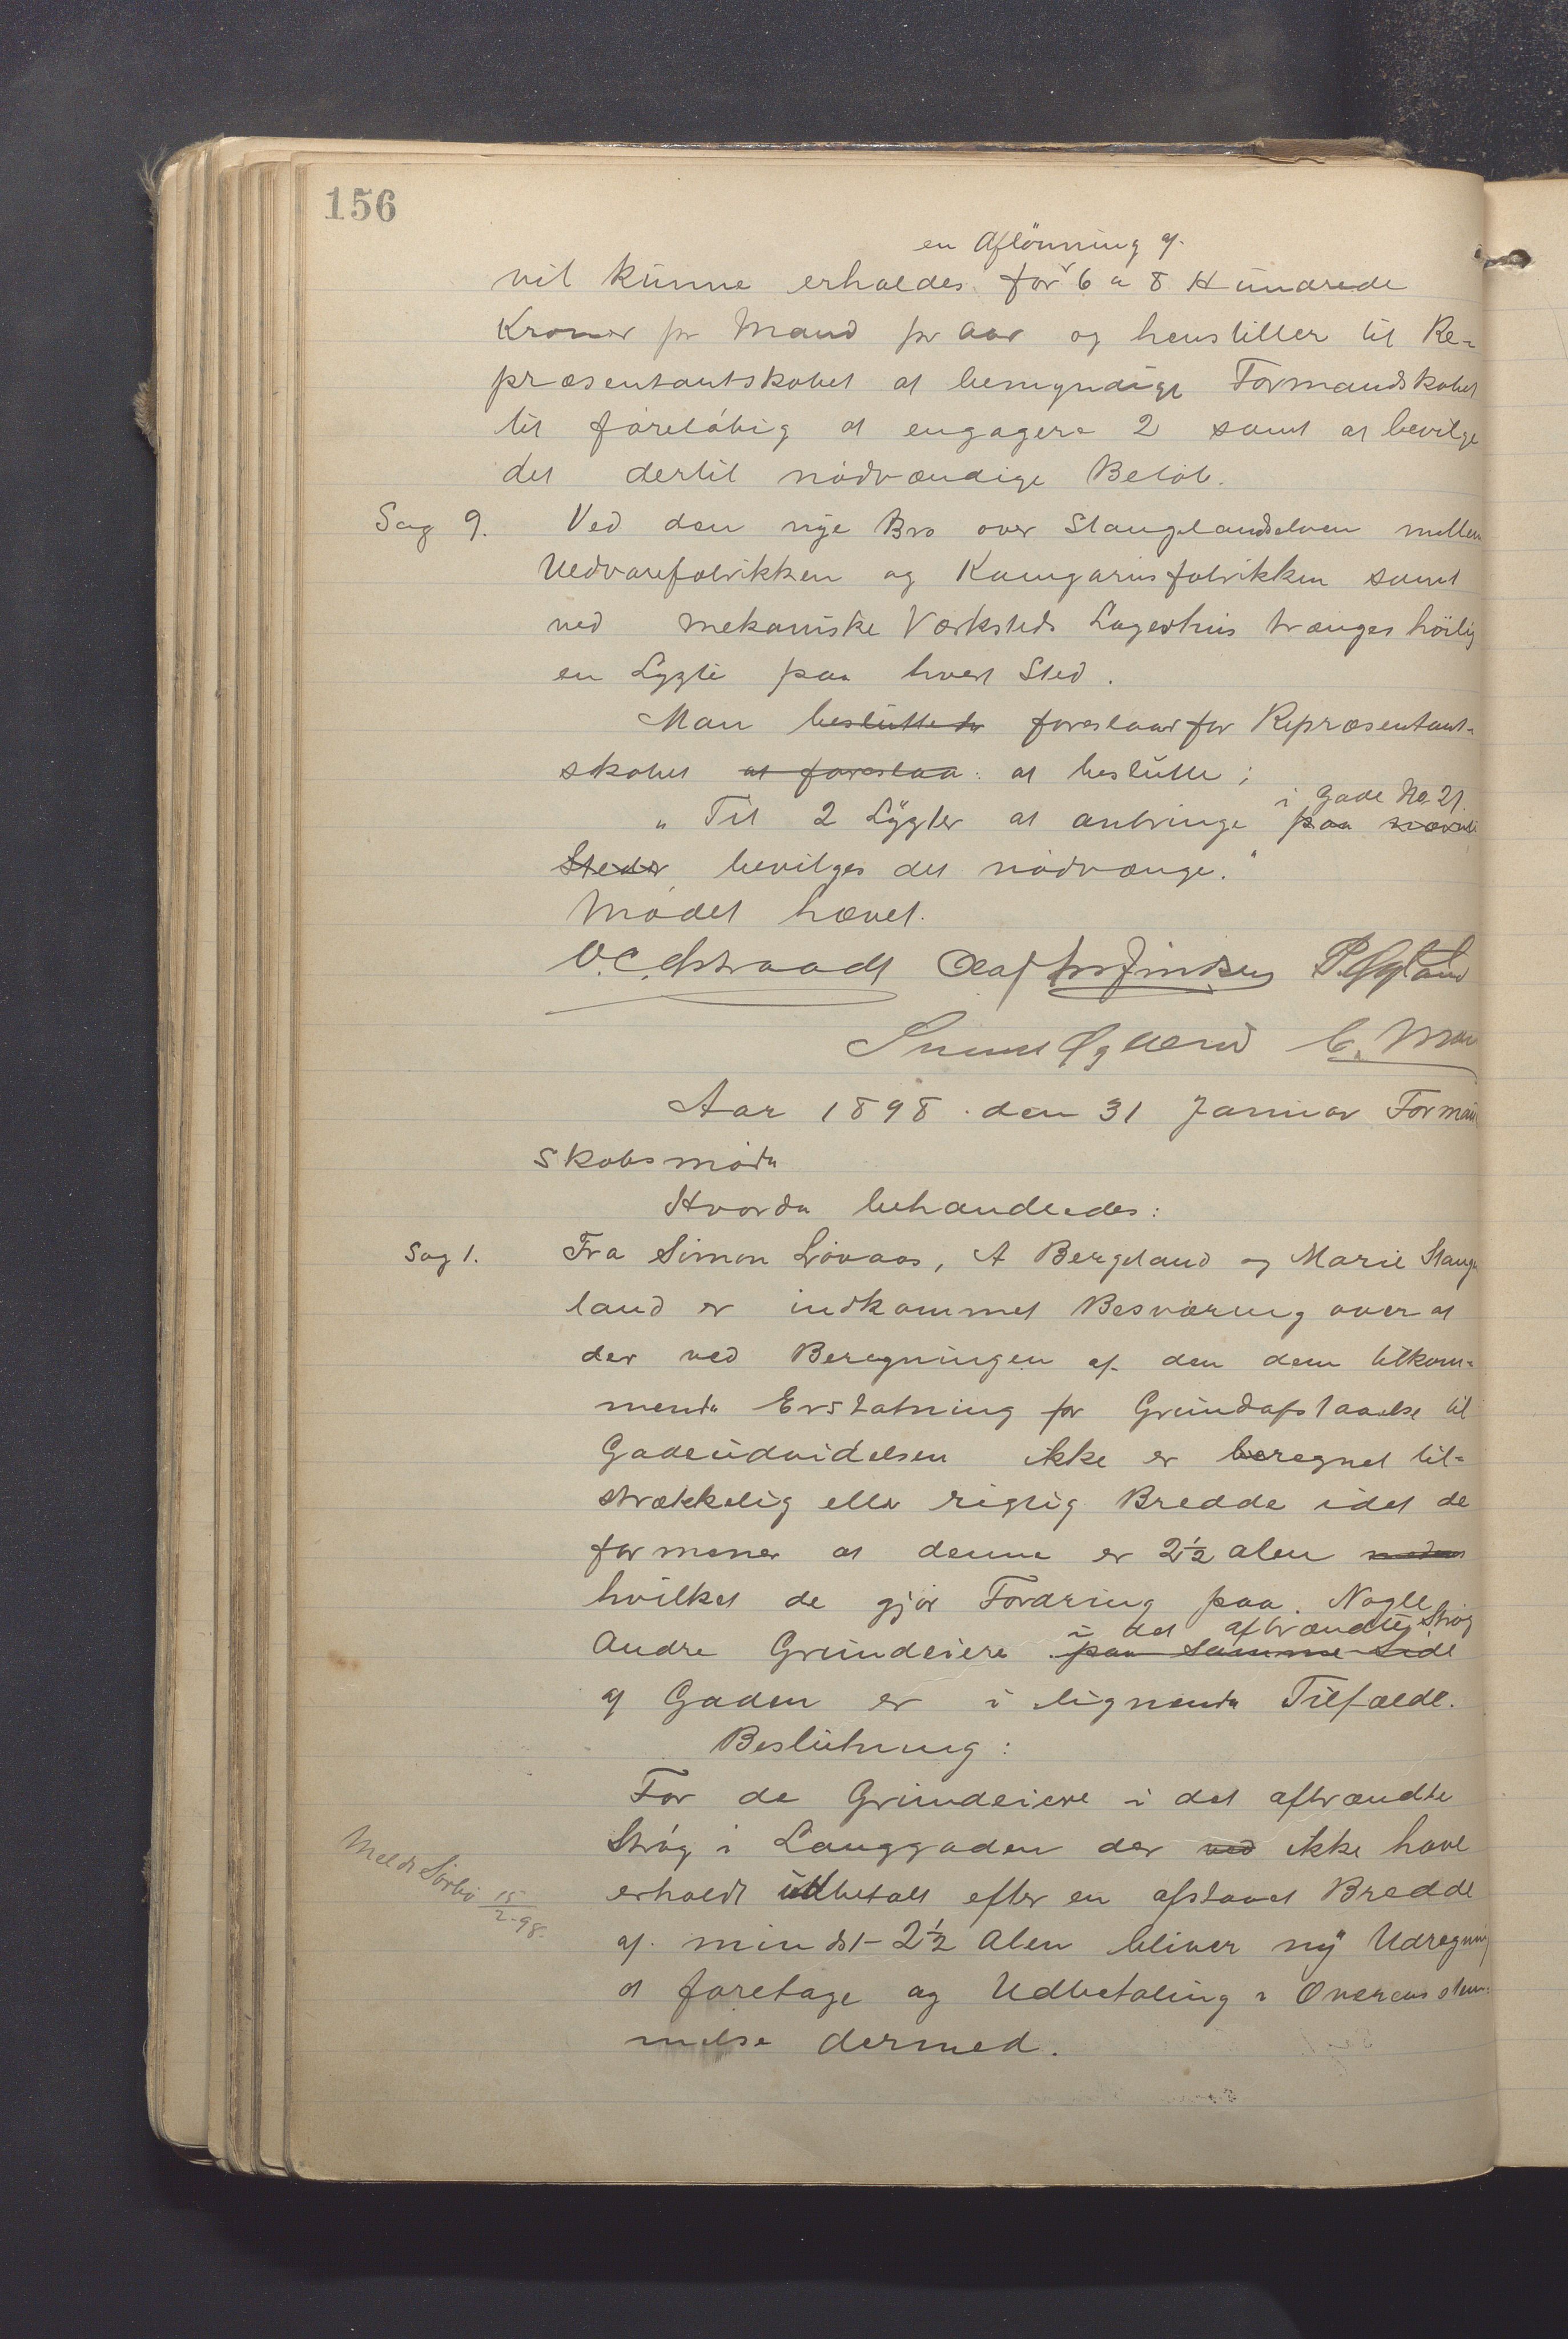 156
en Aflönning af
vil kunne erholdes for 6 a 8 Hundrede
Kroner pr Mand pr Aar og henstiller til Re-
præsentantskabet at bemyndige Formandskabet
til foreløbig at engagere 2 samt at bevilge
det dertil nödvændige Beløb.
Sag 9. Ved den nye Bro over Stangelandselven mellem
Uldvarefabrikken og Kamgarnsfabrikken samt
ved mekaniske Værksteds Lagerhus trænges höilig
en Lygte paa hvert Sted.
Man besluttede foreslaar for Repræsentant-
skabet at foreslaa: at beslutte;
i Gade No 21.
"Til 2 Lygter at anbringe paa nævnte
Steder bevilges det nödvænge."
Mödet hævet.
O.C. Astraadt Olaf P. Øgland
Øglænd C.
Aar 1898 den 31 Januar Forman
skabsmöde
Hvorda behandledes:
Sag 1. Fra Simon Lövaas, A Bergeland og Marie Stange
land er indkommet Besværing over at
der ved Beregningen af den dem tilkom-
mende Erstatning for Grundafstaaelse til
Gadeudvidelsen ikke er beregnet til-
strækkelig eller rigtig Bredde idet de
formener at denne er 2½ alen
hvilket de gjör Fordring paa. Nogle
i det afbrændte Strög
Andre Grundeiere paa samme Side
af Gaden er i lignende Tilfælde.
Beslutning:
For de Grundeiere i det afbrændte
Strög i Langgaden der ved ikke have
erholdt udbetalt efter en afstaaet Bredde
Meldt Sörbö 15/2-98.
af mindst 2½ Alen bliver ny Udregning
at foretage og Udbetaling i Overensstem-
melse dermed.